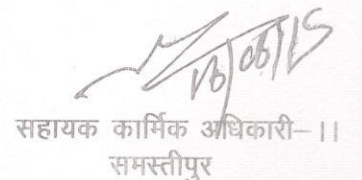 18/06/15
सहायक कार्मिक अधिकारी–।।
समस्तीपुर